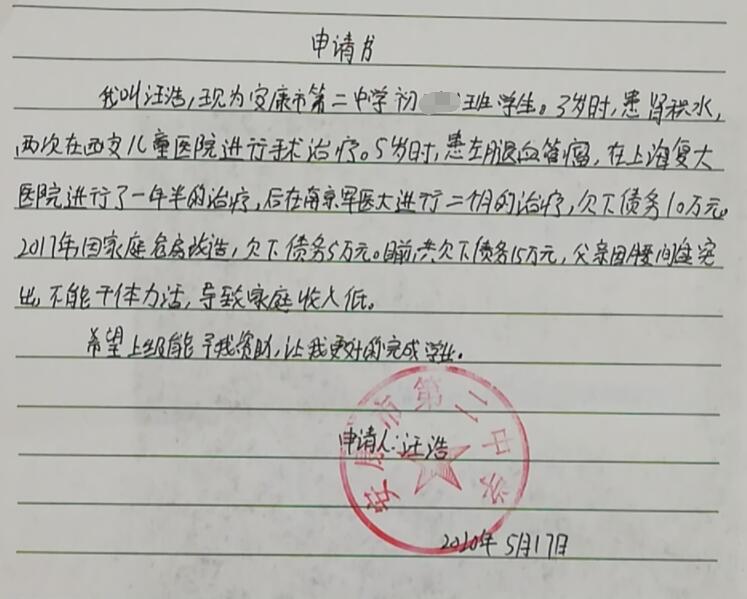 申请书
我叫汪浩,现为安康市第二中学初 班学生。3岁时,患肾积水,
两次在西安儿童医院进行手术治疗。5岁时,患左腿血管瘤,在上海复大
医院进行了一年半的治疗,后在南京军医大进行二个月的治疗,欠下债务10万元。
2017年,因家庭危房改造,欠下债务5万元。目前,共欠下债务15万元,父亲因腰间盘突
出,不能干体力活,导致家庭收入低。
希望上级能予我资助,让我更好的完成学业。
安康市第二中学
申请人:汪浩
2020年5月17日